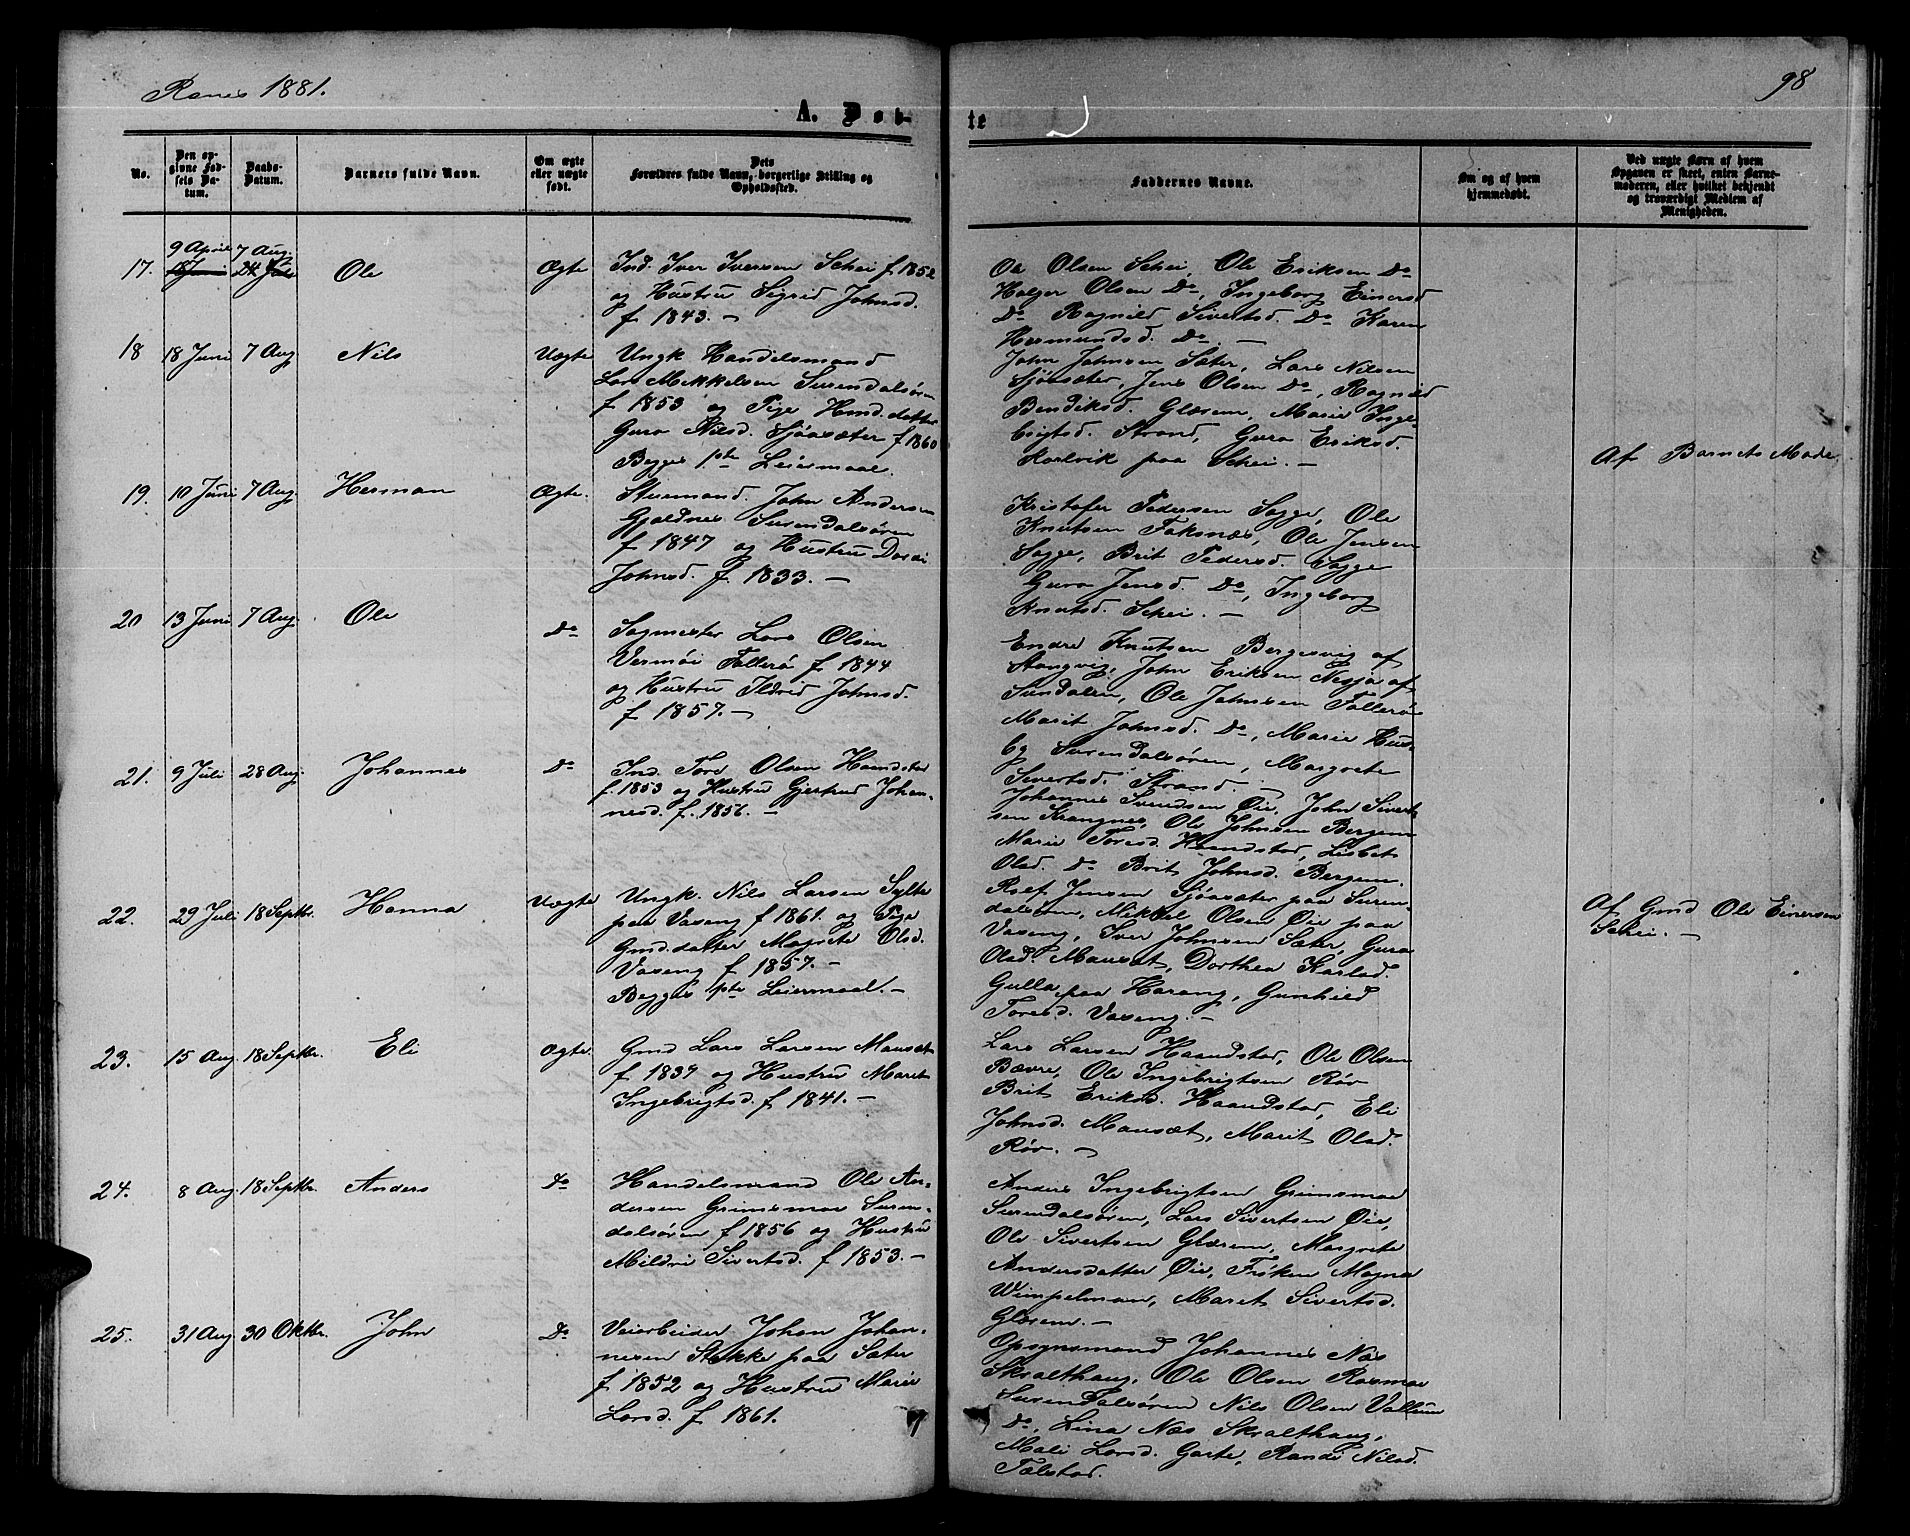 Ranes 1881.
98
A. Døb-
te
No.
Den op-
givne Fød-
sels Da-
tum.
Daabs-
Datum.
Barnets fulde Navn.
Om ægte
eller uægte
født.
Dets
Forældres fulde Navn, borgerlige Stilling og
Opholdssted.
Faddernes Navne.
Om og af hvem
hjemmedøbt.
Ved uægte Børn af hvem
Opgaven er skeet, enten Barne-
moderen, eller hvilket bekjendt
og troværdigt Medlem af
Menigheden.
17.
9 April
7 Aug.
Ole
Ægte
Ind. Iver Iversen Schei f 1852
og Hustru Sigrid Johnsd.
f 1843. –
Ole Olsen Schei, Ole Eriksen Do
Holger Olsen Do, Ingeborg Einersd
Do Ragnild Sivertsd. Do Karen
Hermundsd. Do. –
18
18 Juni
7 Aug
Nils
Uægte
Ungk Handelsmand
Lars Mikkelsen Surendalsøren
f 1853 og Pige Hmd.datter
Guro Nilsd. Sjøasæter f 1860
Begges 1ste Leiermaal.
John Johnsen Sæter, Lars Nilsen
Sjøasæter, Jens Olsen Do, Ragnild
Bendiksd. Glærem, Marie Inge-
brigtsd. Strand, Guro Eriksd.
Karlvik paa Schei. –
Af Barnets Moder
19.
10 Juni
7 Aug.
Herman
Ægte.
Stuemand. John Andersen
Gjeldnes Surendalsøren
f 1847 og Hustru Dordi
Johnsd. f 1833. –
Kristofer Pedersen Sogge, Ole
Knutsen Foksnæs, Ole Jensen
Sogge, Brit Pedersd. Sogge
Guro Jensd. Do, Ingeborg
Knutsd. Schei. –
20
13 Juni
7 Aug.
Ole
Do
Sagmester Lars Olsen
Vermøi Follerø f 1844
og Hustru Ildrid Johnsd.
f 1857. –
Endre Knutsen Bergesvig af
Stangvig, John Eriksen Nesja af
Sundalen, Ole Johnsen Follerø
Marit Johnsd. Do, Marie Hus-
by Surendalsøren, Margrete
Sivertsd. Strand. –
21.
9 Juli
28 Aug.
Johannes
Do
Ind. Tore Olsen Haandstad
f 1853 og Hustru Gjertrud Johan-
nesd. f. 1856. –
Johannes Svendsen Øie, John Siverts-
sen Krangnes, Ole Johnsen Bergem
Marie Toresd. Haandstad, Lisbet
Olsd. Do Brit Johnsd. Bergem.
22.
29 Juli
18 Septbr.
Hanna
Uægte
Ungk. Nils Larsen Sylte
paa Vaseng f 1861. og Pige
Gmd.datter Magrete Olsd.
Vaseng f 1857. –
Begges 1ste Leiermaal. –
Rolf Jensen Sjøasæter paa Suren-
dalsøren, Mikkel Olsen Øie paa
Vaseng, Iver Johnsen Sæter, Guro
Olsd. Mausæt, Dorthea Karlsd.
Gulla paa Harang, Gunhild
Toresd. Vaseng. –
Af Gmd Ole Einersen
Schei. –
23.
15 Aug.
18 Septbr.
Eli
Ægte.
Gmd Lars Larsen Mausæt
f 1839 og Hustru Marit
Ingebrigtsd. f 1841. –
Lars Larsen Haandstad, Ole Olsen
Bævre, Ole Ingebrigtsen Røv
Brit Eriksd. Haandstad, Eli
Johnsd. Mausæt, Marit Olsd.
Røv. –
24.
8 Aug.
18 Septbr.
Anders
Do
Handelsmand Ole An-
dersen Grimsmoe Suren-
dalsøren f 1856 og Hustru
Mildri Sivertsd. f 1853. –
Anders Ingebrigtsen Grimsmoe
Surendalsøren, Lars Sivertsen Øie,
Ole Sivertsen Glærem, Margrete
Andersdatter Øie, Frøken Magna
Wimpelman, Marit Sivertsd.
Glærem. –
25.
31 Aug
30 Oktbr.
John
Do
Veiarbeider Johan Johan-
nesen Stokke paa Sæter
f 1852 og Hustru Marie
Larsd. f 1861.
Opsynsmand Johannes Næs
Skralthaug, Ole Olsen Rosmoe
Surendalsøren Nils Olsen Vullum
Do, Lina Næs Skralthaug,
Mali Larsd. Garte, Randi Nilsd.
Tælstad.